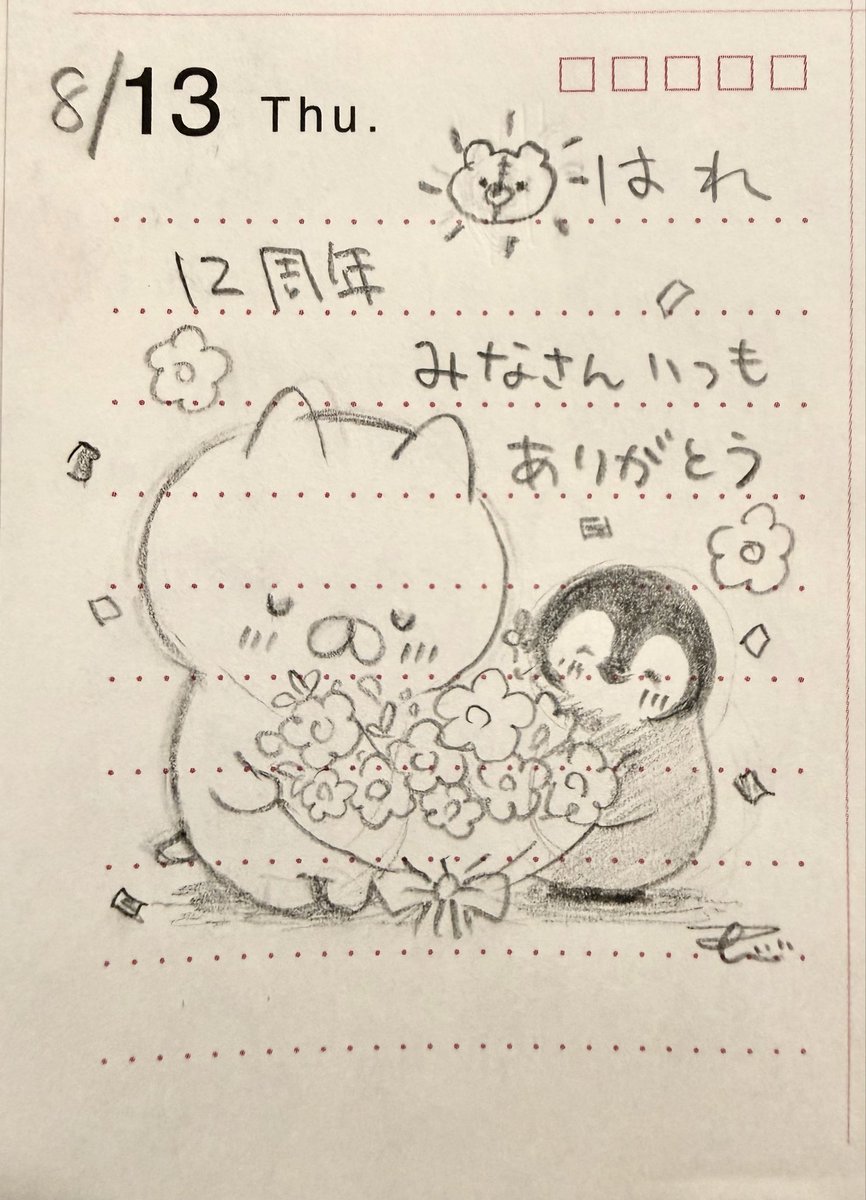 8/13 Thu.
はれ
12周年
みなさんいつも
ありがとう